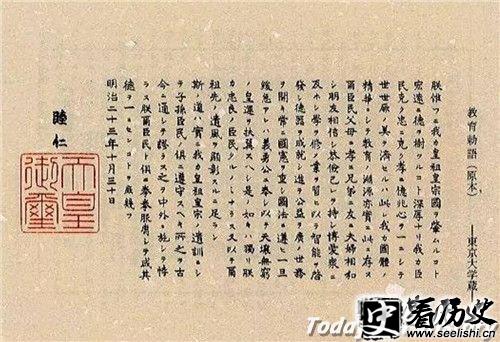 教育勅語(原本)
——東京大学蔵——
朕惟フニ我カ皇祖皇宗國ヲ肇ムルコト
宏遠ニ德ヲ樹ツルコト深厚ナリ我カ臣
民克ク忠ニ克ク孝ニ億兆心ヲ一ニシテ
世世厥ノ美ヲ濟セルハ此レ我カ國體ノ
精華ニシテ敎育ノ淵源亦實ニ此ニ存ス
爾臣民父母ニ孝ニ兄弟ニ友ニ夫婦相和
シ朋友相信シ恭儉己レヲ持シ博愛衆ニ
及ホシ學ヲ修メ業ヲ習ヒ以テ智能ヲ啓
發シ德器ヲ成就シ進テ公益ヲ廣メ世務
ヲ開キ常ニ國憲ヲ重シ國法ニ遵ヒ一旦
緩急アレハ義勇公ニ奉シ以テ天壤無窮
ノ皇運ヲ扶翼スヘシ是ノ如キハ獨リ朕
カ忠良ノ臣民タルノミナラス又以テ爾
祖先ノ遺風ヲ顯彰スルニ足ラン
斯ノ道ハ實ニ我カ皇祖皇宗ノ遺訓ニシ
テ子孫臣民ノ俱ニ遵守スヘキ所之ヲ古
今ニ通シテ謬ラス之ヲ中外ニ施シテ悖
ラス朕爾臣民ト俱ニ拳拳服膺シテ咸其
德ヲ一ニセンコトヲ庶幾フ
明治二十三年十月三十日
睦仁
天皇御璽
看历史
www.seelishi.cn
史
Toda